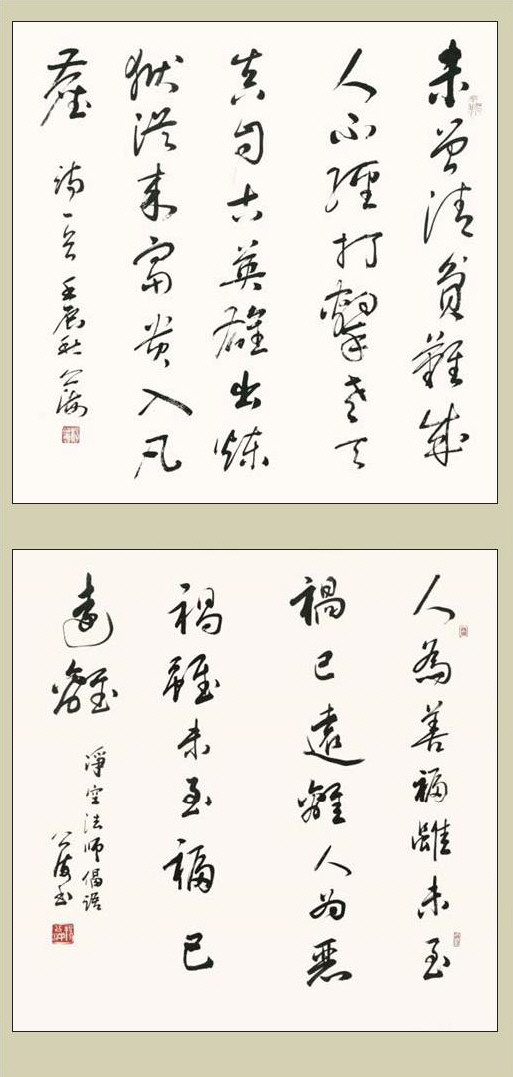 未曾清貧難成
人不經打擊老天
真自古英雄出煉
獄從來富貴入凡
塵
詩一首 壬辰秋 公海
人為善福雖未至
禍已遠離人為惡
禍雖未至福已
遠離
淨空法師偈語
公海書